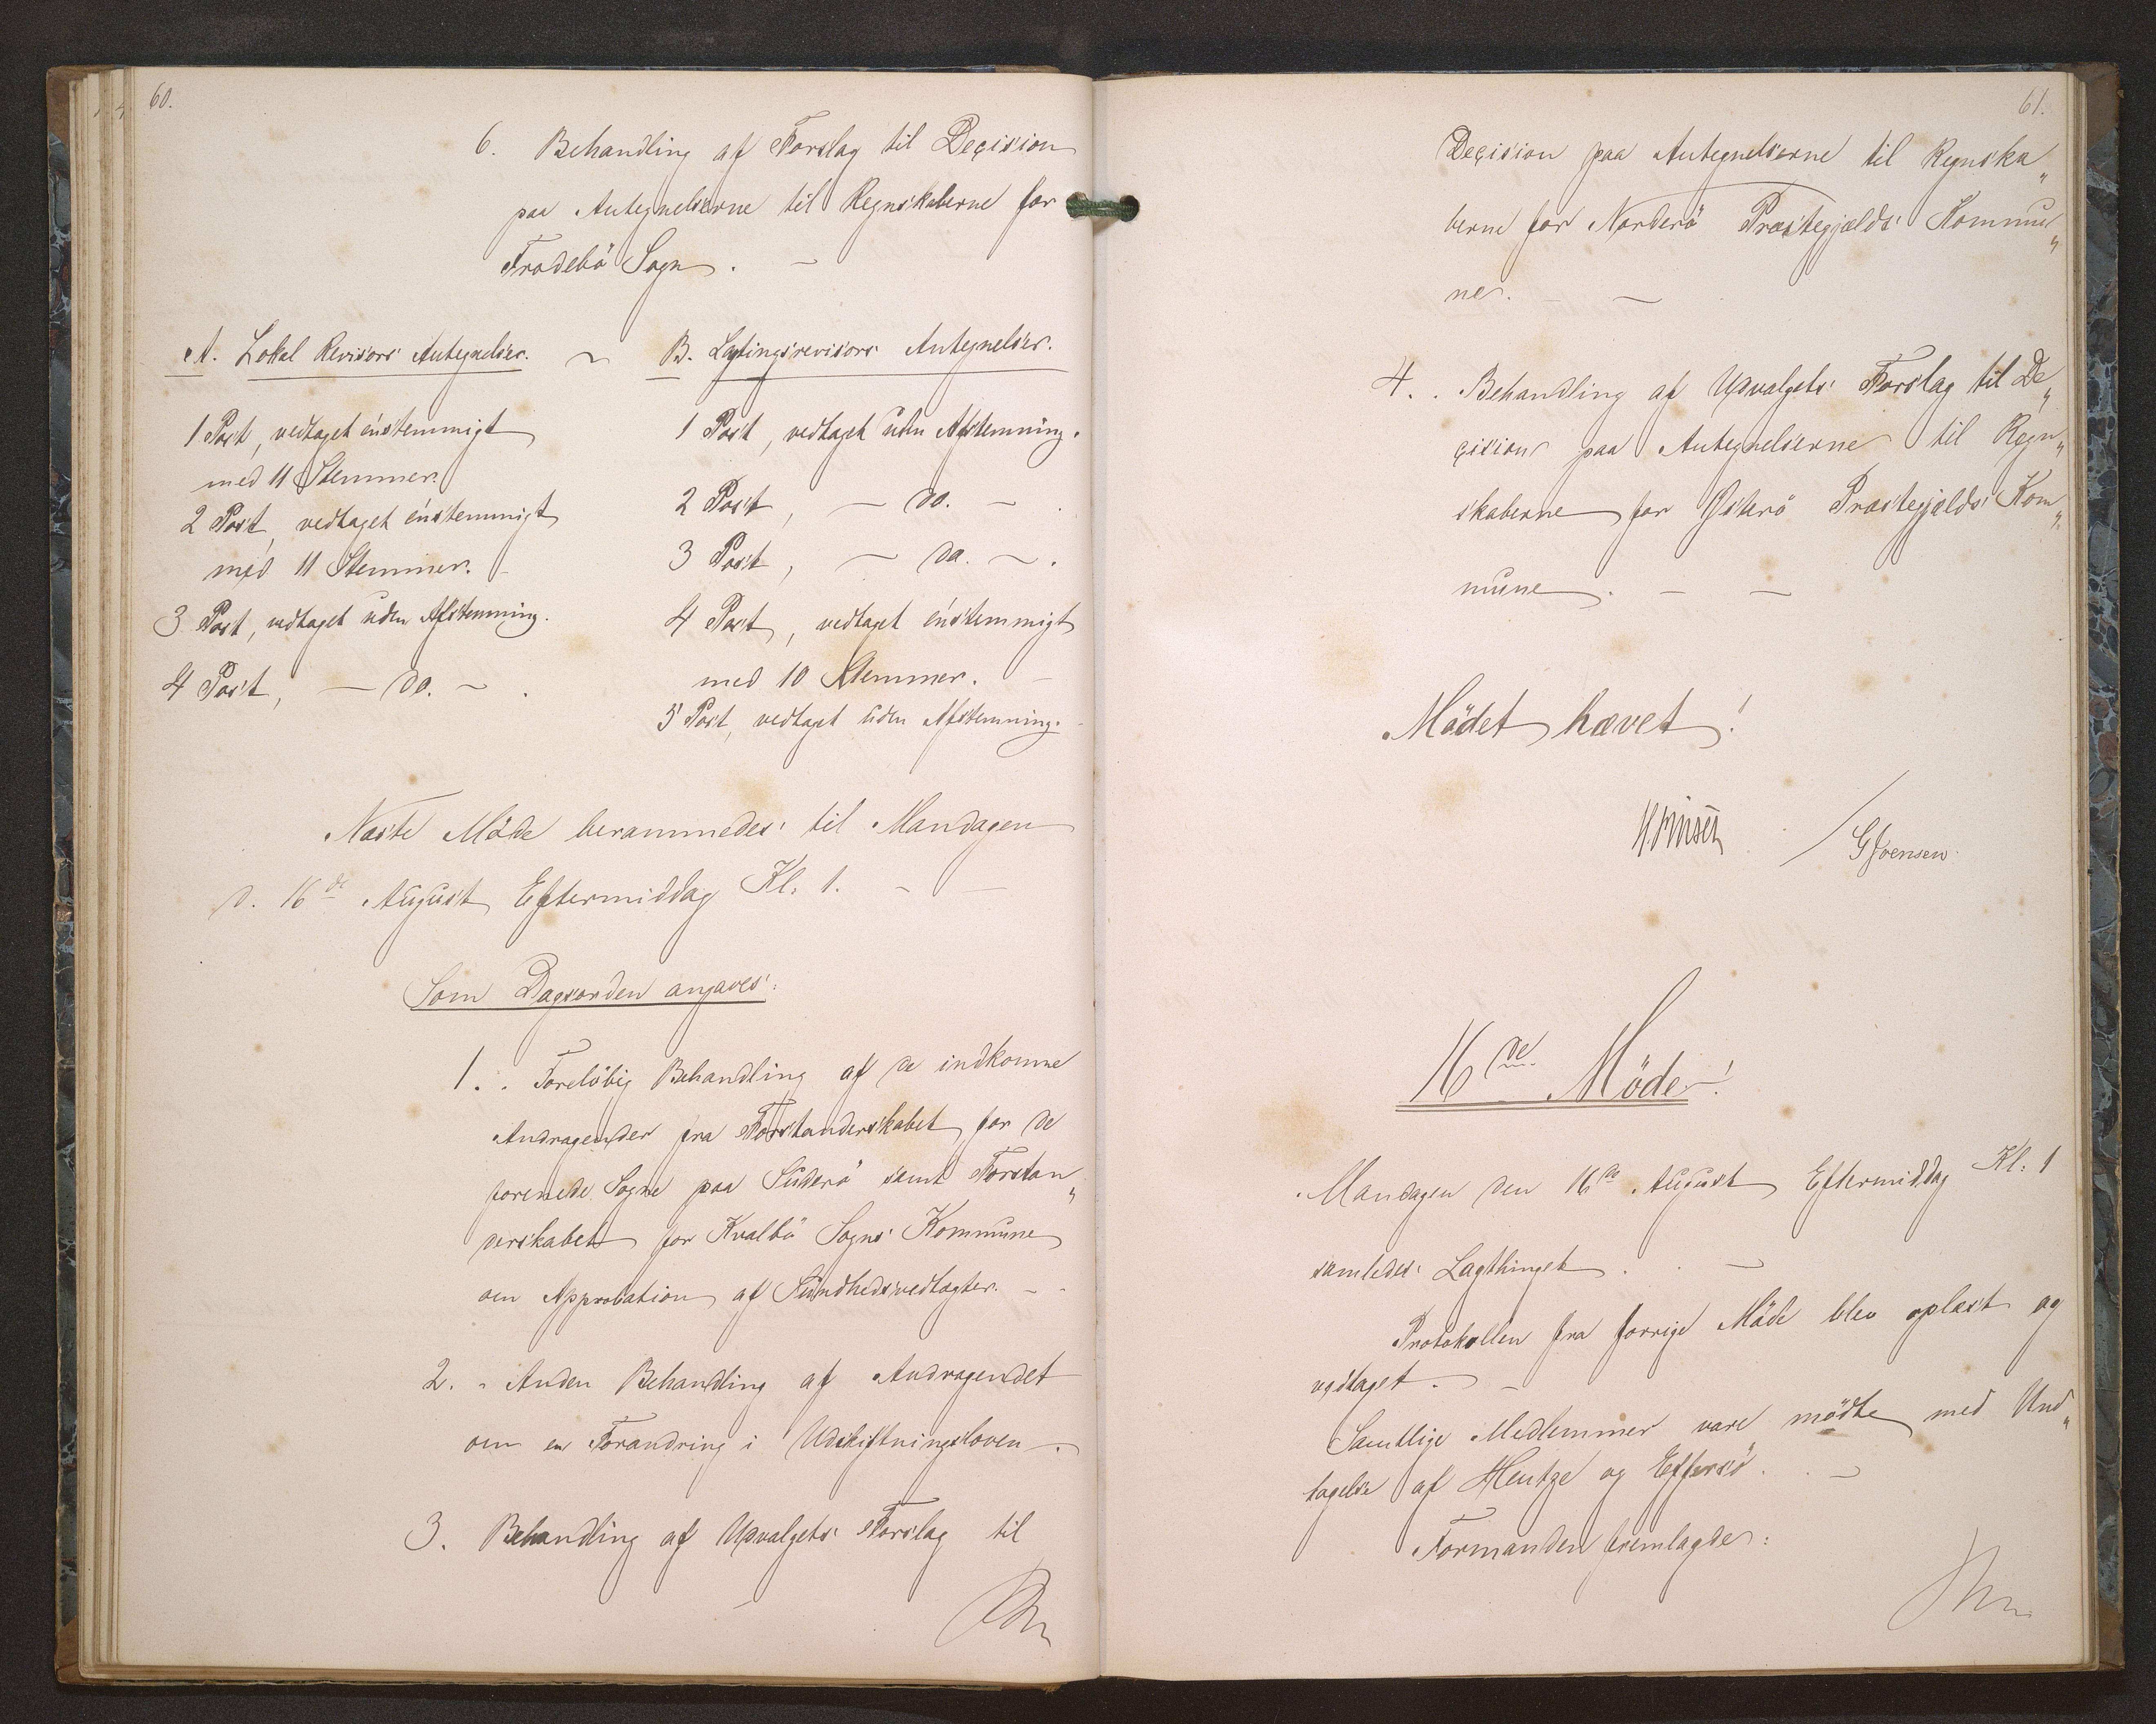 60.
6. Behandling af Forslag til Decision
paa Antegnelserne til Regnskaberne for
Frodebö Sogn. —
A. Lokal Revisors Antegnelser. ~
1 Post, vedtaget énstemmigt
med 11 Stemmer.
2 Post, vedtaget énstemmigt
med 11 Stemmer. –
3 Post, vedtaget uden Afstemning.
4 Post, — do. — .
B. Lagtingsrevisors Antegnelser.
1 Post, vedtaget uden Afstemning.
2 Post, — do. — .
3 Post, — do. — .
4 Post, vedtaget énstemmigt
med 10 Stemmer. –
5 Post, vedtaget uden Afstemning. –
Næste Möde berammedes til Mandagen
d. 16de August Eftermiddag Kl: 1. – —
Som Dagsorden angaves:
1. . Foreløbig Behandling af de indkomne
Andragender fra Forstanderskabet for de
forenede Sogne paa Suderö samt Forstan„
derskabet for Kvalbö Sogns Kommune
om Approbation af Sundhedsvedtægter. – –
2. . Anden Behandling af Andragendet
om en Forandring i Udskiftningsloven –.
3. Behandling af Udvalgets Forslag til
61.
Decision paa Antegnelserne til Regnska„
berne for Norderö Præstegjælds Kommu„
ne. – —
4. . Behandling af Udvalgets Forslag til De„
cision paa Antegnelserne til Regn„
skaberne for Østerö Præstegjælds Kom„
mune. – —
Mödet hævet!
H. Finsen / GJoensen.
16de Möde!
Mandagen den 16de August Eftermiddag Kl: 1
samledes Lagthinget . . —
Protokollen fra forrige Möde blev oplæst og
vedtaget. –
Samtlige Medlemmer vare mödte med Und„
tagelse af Hentze og Effersö. . —
Formanden fremlagde: